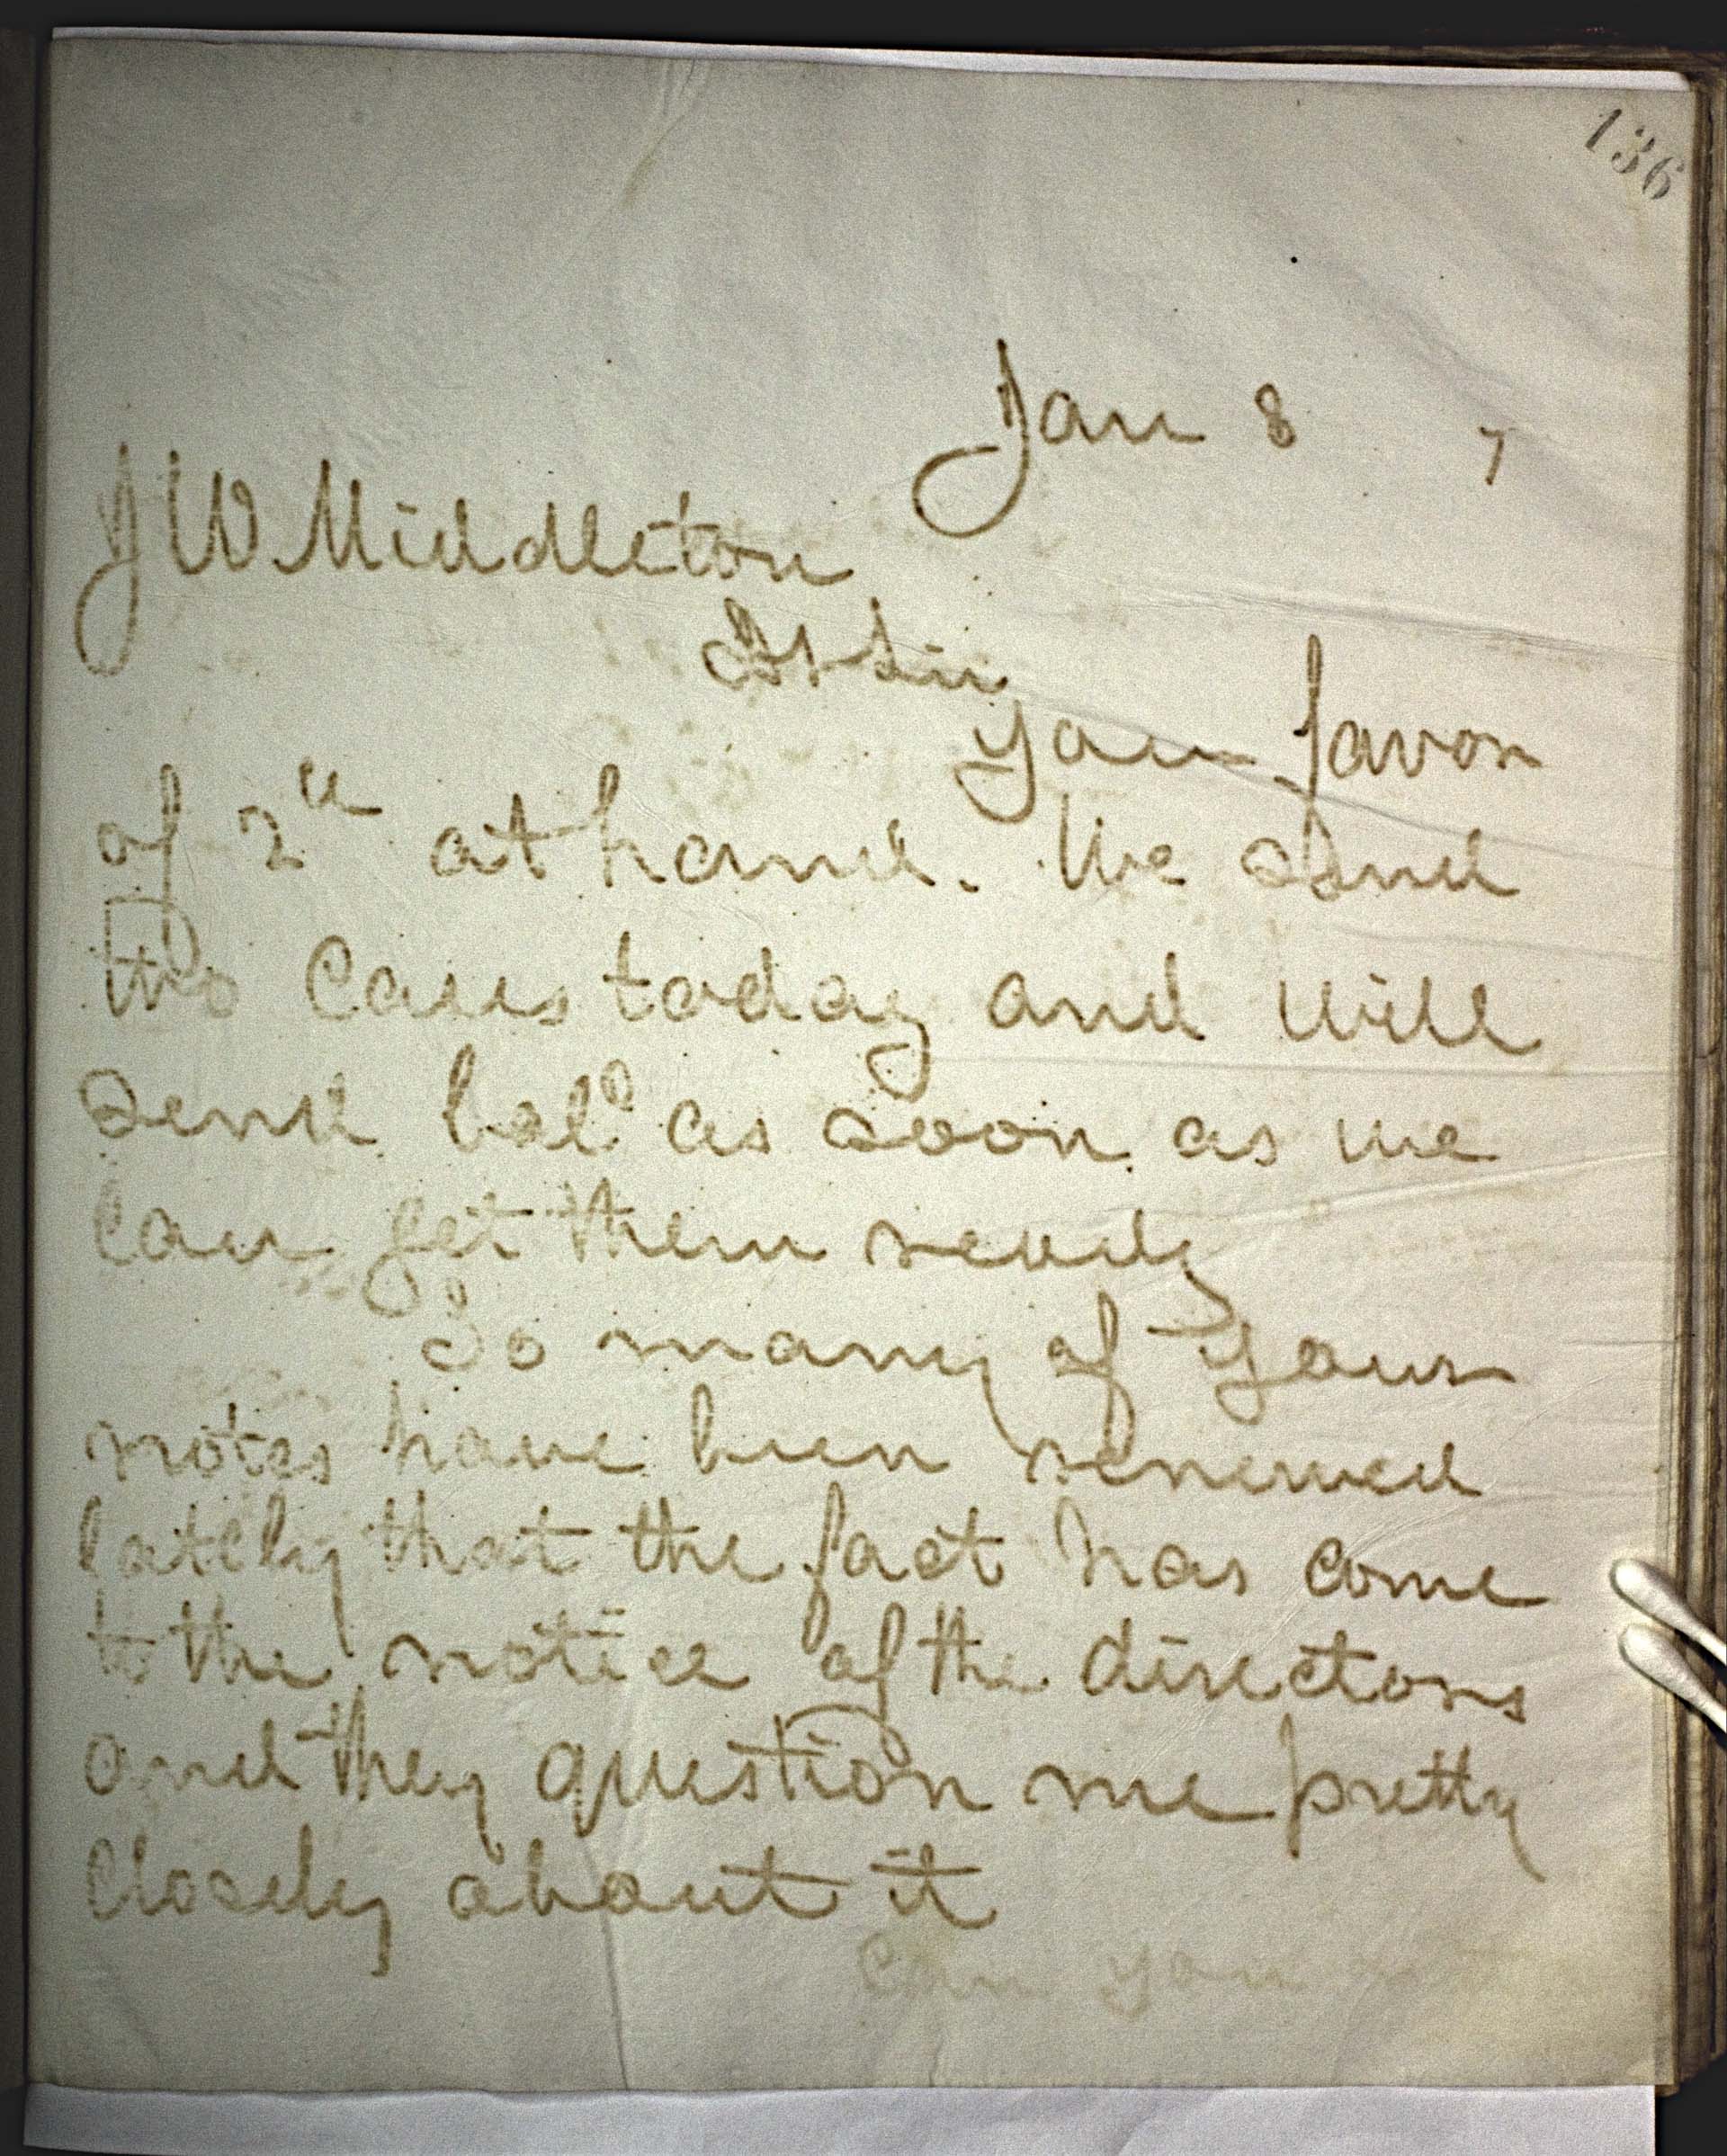 136
Jan 8 7
J W Middleton
D Sir
Your favor
of 2d at hand. We send
two cases today and will
send balc as soon as we
can get them ready
So many of your
notes have been renewed
lately that the fact has come
to the notice of the directors
and they question me pretty
closely about it
Can you